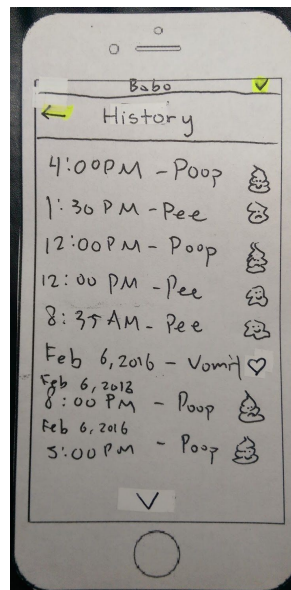 Babo
History
4:00PM - Poop
1:30 PM - Pee
12:00PM - Poop
12:00 PM - Pee
8:35 AM - Pee
Feb 6, 2016 - Vomit
Feb 6, 2016
8:00 PM - Poop
Feb 6, 2016
5:00PM - Poop